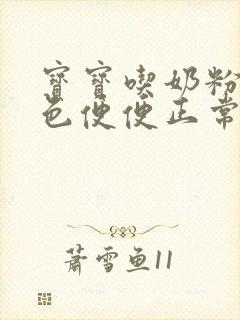 寶寶喫奶粉
色便便正常
蕭雪魚11